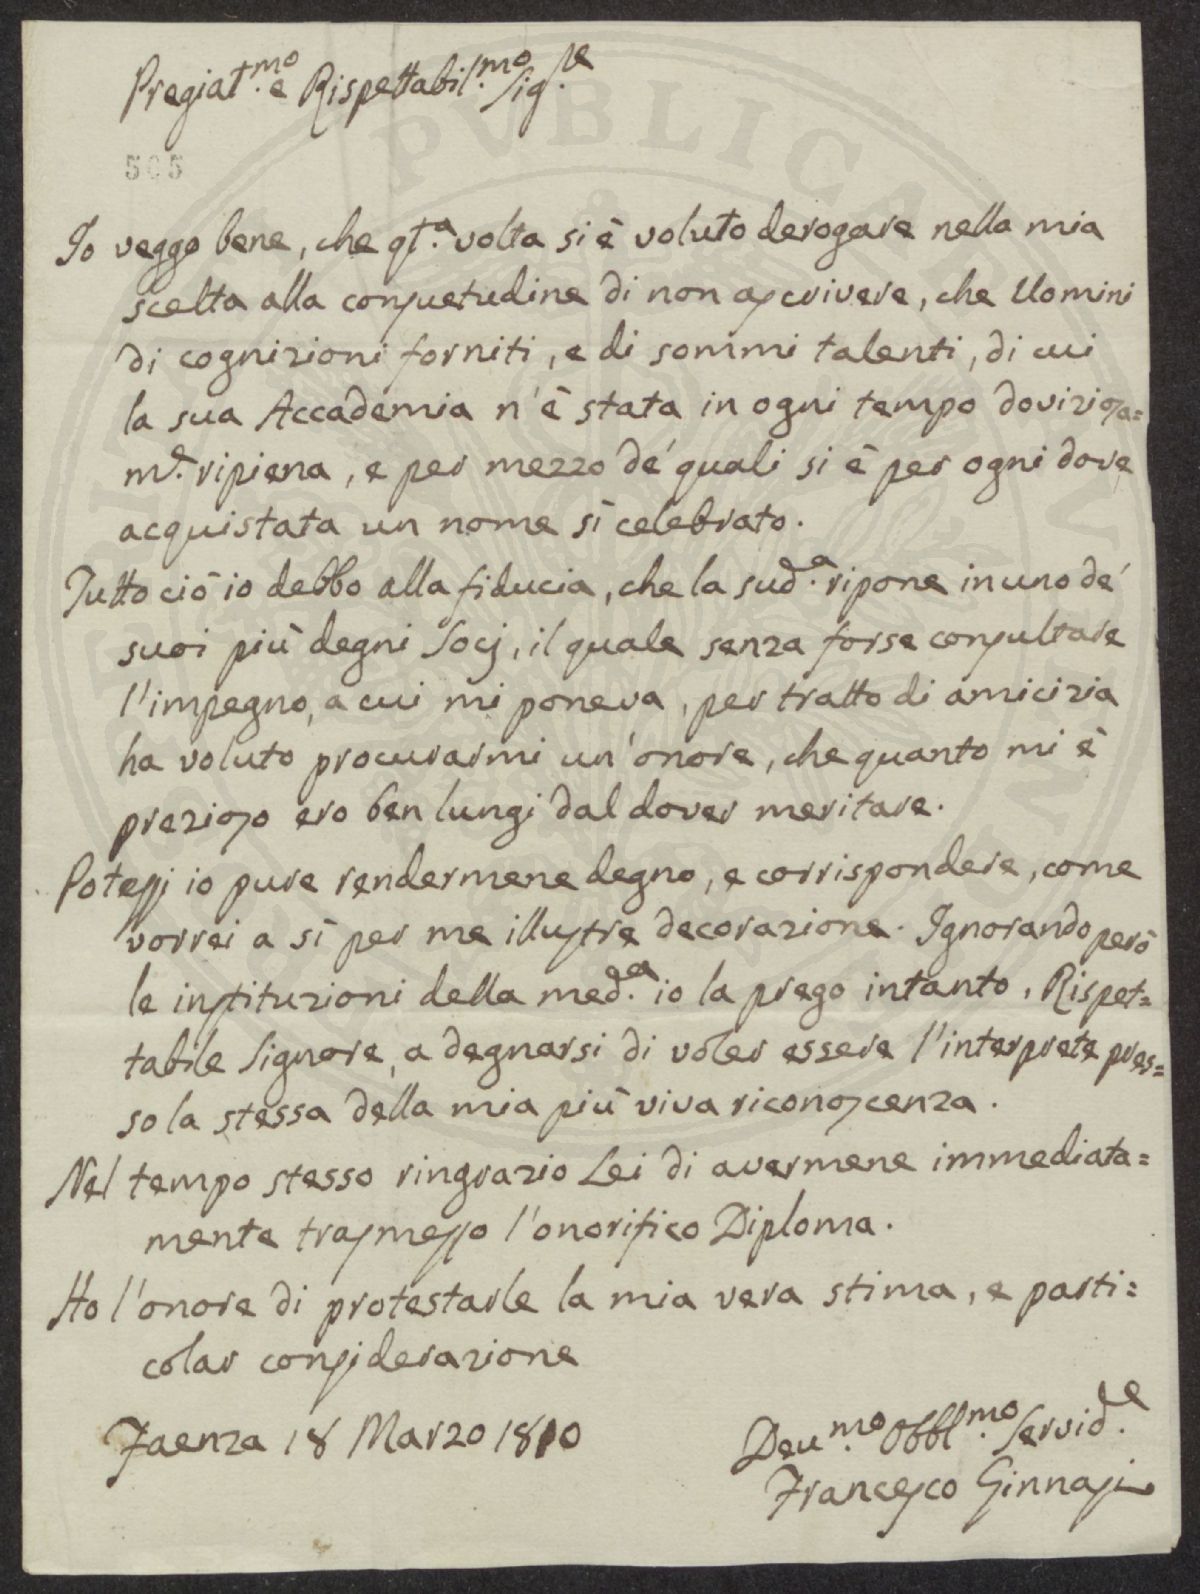 Pregiat.mo e Rispettabil.mo Sig.re
505
Io veggo bene, che qt.a volta si è voluto derogare nella mia
scelta alla consuetudine di non ascrivere, che Uomini
di cognizioni forniti, e di sommi talenti, di cui
la sua Accademia n'è stata in ogni tempo doviziosa=
m.e ripiena, e per mezzo de' quali si è per ogni dove
acquistata un nome sì celebrato.
Tutto ciò io debbo alla fiducia, che la sud.a ripone in uno de'
suoi più degni Socj, il quale senza forse consultare
l'impegno, a cui mi poneva, per tratto di amicizia
ha voluto procurarmi un'onore, che quanto mi è
prezioso ero ben lungi dal dover meritare.
Potessi io pure rendermene degno, e corrispondere, come
vorrei a sì per me illustre decorazione. Ignorando però
le instituzioni della med.a io la prego intanto, Rispet=
tabile Signore, a degnarsi di voler essere l'interprete pres=
so la stessa della mia più viva riconoscenza.
Nel tempo stesso ringrazio Lei di avermene immediata=
mente trasmesso l'onorifico Diploma.
Ho l'onore di protestarle la mia vera stima, e parti=
colar considerazione
Faenza 18 Marzo 1810
Deu.mo Obbl.mo Servid.e
Francesco Ginnasi